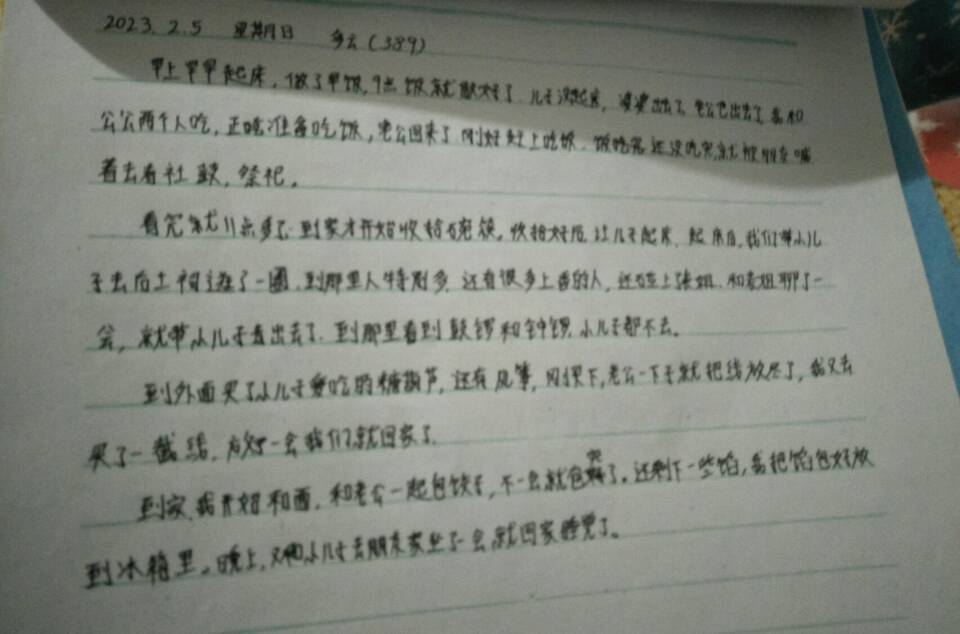 2023.2.5 星期日 多云(389)
早上早早起床,做了早饭,9点饭就做好了.儿子没起床,婆婆出去了,老公也出去了,我和
公公两个人吃,正啥准备吃饭,老公回来了刚好赶上吃饭.饭吃完还没吃完,就被朋友喊
着去看社鼓,祭祀。
看完就11点多了.到家才开始收拾碗筷,收拾好后,让儿子起床.起床后,我们带小儿
子去后土祠逛了一圈.到那里人特别多,还有很多上香的人,还碰上张姐.和张姐聊了一
会,就带小儿子直出去了.到那里看到鼓锣和钟锣.小儿子都不去。
到外面买了小儿子爱吃的糖葫芦,还有风筝,风很下,老公一下子就把线放尽了,我又去
买了一截线,放了一会我们就回家了.
到家,我开始和面,和老公一起包饺子,不一会就包完了。还剩下一些馅,我把馅包好放
到冰箱里。晚上,又和小儿子去朋友家坐了一会,就回家睡觉了。